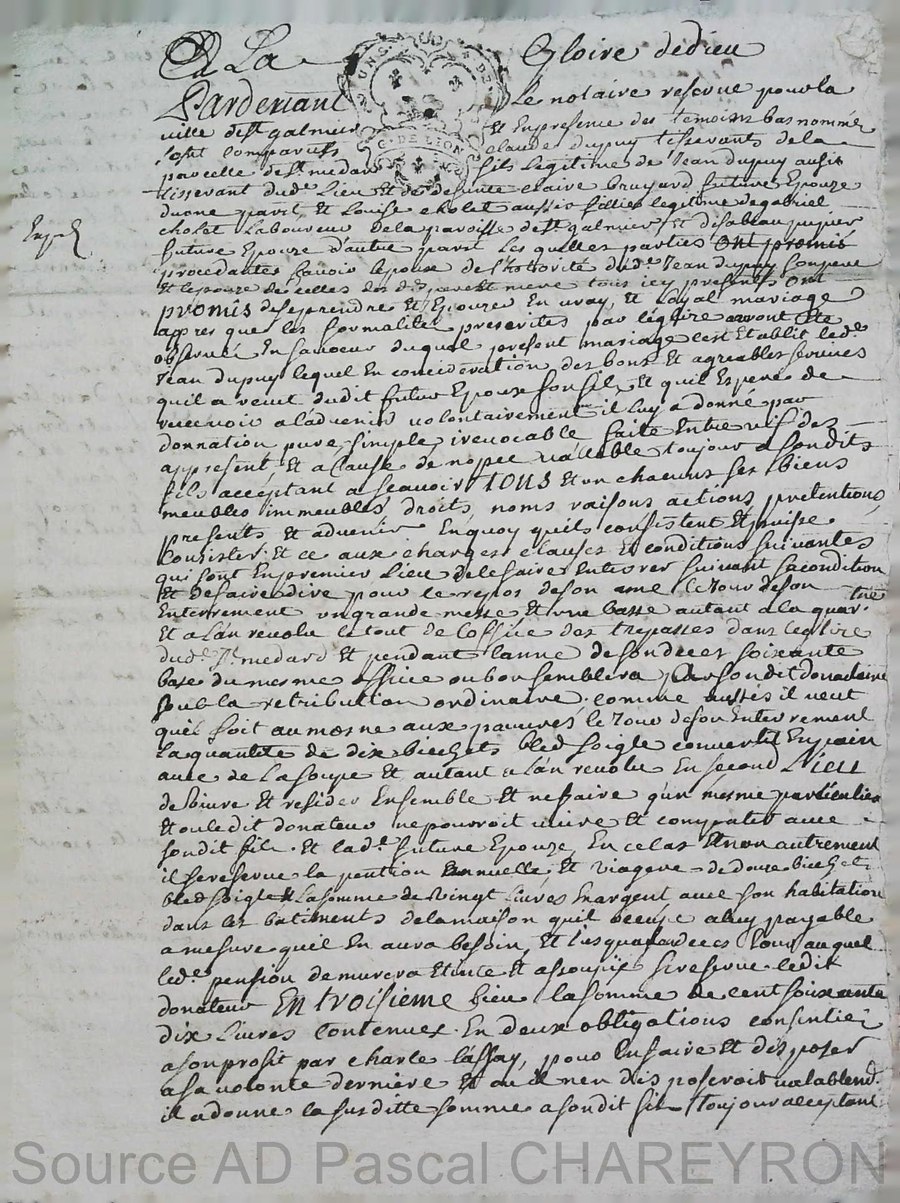 A La Gloire de dieu
Pardevant Le notaire reservé pour la
ville de st galmier Et En presence des temoins bas nommé
sont comparus claude dupuy tisserant de la
paroelle de st medard fils Legitime de Jean dupuy aussi
tisserant dud. Lieu Et de defunte claire bruyard futur Epouze
dune part, Et Louise cholet aussi fillie legitime de gabriel
cholet Laboureur de la paroisse de st galmier, Et
future Epouze d'autre part Les quelles parties ont promis
procedantes scavoir lepoux de l'otorité dud. Jean dupuy son pere
Et lepouze de celles des d. pere et mere tous icy presents ont
promis de se prendre Et Epouze En vray, Et Loyal mariage
appres que les formalités prescrites par léglize auront été
observé En faveur duquel present mariage cest Etablit led.
Jean dupuy lequel En concideration des bons Et agreables services
quil a receut dudit futur Epoux son fils, Et quil Espere de
recevoir a l'advenir volontairement il luy a donné par
donnation pure, simple, irevocable faite Entre vifs dez
appresent, Et a cause de nopce valable toujour a sondits
fils acceptant a scavoir TOUS Et un chacuns ses biens
meubles immeubles, droits, noms raisons actions, pretentions,
presents Et advenir En quoy quils consistent Et puisse
Consister Et ce aux charges clauses Et conditions suivantes
qui sont En premier Lieu de le faire Enterrer suivant sa condition
Et de faire dire pour le repos de son ame le Jour de son
Enterrement un grande messe Et une basse autant a la quar-
taine
Et a l'an revolu le tout de l'office des trepasses dans l'eglise
dud. St medard Et pendant l'anne de son deces soixante
base du mesme office ou bon semblera a sondit donataire
soub la retribution ordinaire comme aussis il veut
quil soit aumosne aux pauvres le Jour de son Enterrement
la quantité de dix bichets bled soigle convertit En pain
avec de la soupe Et autant a l'an revolu En second Lieu
de vivre Et resider Ensemble Et ne faire qun mesme
Et ou ledit donateur ne pouvoit vivre Et compatir avec
sondit fils Et lad. future Epouze, En ce cas Et non autrement
il se reserve la pention Annuelle Et viagere de douze bichet
bled soigle Et la somme de Vingt Livres En argent, avec son habitation
dans les batiments de la maison quil occupe a luy payable
a mesure quil En aura besoin, Et Jusqua son deces Jour auquel
led. pension demurera Eteinte Et assoupie se reserve ledit
donateur En troisieme Lieu la somme de cent soixante
dix Livres contenues En deux obligations consentie
a son profit par charle lassay, pour En faire Et disposer
a sa volonté derniere Et ou il nen disposeroit valablem.
il a donne la susditte somme a sondit fils toujour acceptant
C. DE LION
Source AD Pascal CHAREYRON